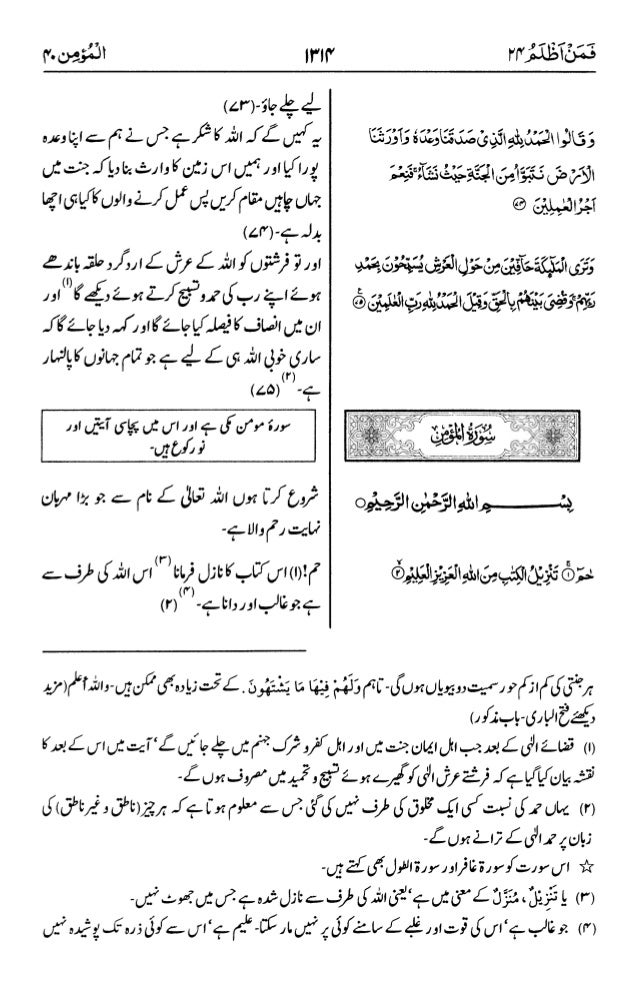 فَمَنْ اَظْلَمُ ۲۴
۱۳۱۴
الْمُؤْمِن ۴۰
وَقَالُوا الْحَمْدُ لِلّٰهِ الَّذِیْ صَدَقَنَا وَعْدَهٗ وَاَوْرَثَنَا
الْاَرْضَ نَتَبَوَّاُ مِنَ الْجَنَّةِ حَیْثُ نَشَآءُ ۚ فَنِعْمَ
اَجْرُ الْعٰمِلِیْنَ ﴿۷۴﴾
وَتَرَی الْمَلٰٓئِكَةَ حَآفِّیْنَ مِنْ حَوْلِ الْعَرْشِ یُسَبِّحُوْنَ بِحَمْدِ
رَبِّهِمْ ۚ وَقُضِیَ بَیْنَهُمْ بِالْحَقِّ وَقِیْلَ الْحَمْدُ لِلّٰهِ رَبِّ الْعٰلَمِیْنَ ﴿۷۵﴾
سُوْرَةُ الْمُؤْمِنِ
بِسْمِ اللّٰهِ الرَّحْمٰنِ الرَّحِیْمِ ○
حٰمٓ ﴿۱﴾ تَنْزِیْلُ الْكِتٰبِ مِنَ اللّٰهِ الْعَزِیْزِ الْعَلِیْمِ ﴿۲﴾
لیے چلے جاؤ۔ (۷۳)
یہ کہیں گے کہ اللہ کا شکر ہے جس نے ہم سے اپنا وعدہ
پورا کیا اور ہمیں اس زمین کا وارث بنا دیا کہ جنت میں
جہاں چاہیں مقام کریں پس عمل کرنے والوں کا کیا ہی اچھا
بدلہ ہے۔ (۷۴)
اور تو فرشتوں کو اللہ کے عرش کے اردگرد حلقہ باندھے
ہوئے اپنے رب کی حمد و تسبیح کرتے ہوئے دیکھے گا (۱) اور
ان میں انصاف کا فیصلہ کیا جائے گا اور کہہ دیا جائے گا کہ
ساری خوبی اللہ ہی کے لیے ہے جو تمام جہانوں کا پالنہار
ہے۔ (۲) (۷۵)
سورۂ مومن مکی ہے اور اس میں پچاسی آیتیں اور
نو رکوع ہیں۔
شروع کرتا ہوں اللہ تعالیٰ کے نام سے جو بڑا مہربان
نہایت رحم والا ہے۔
حم! (۱) اس کتاب کا نازل فرمانا (۳) اس اللہ کی طرف سے
ہے جو غالب اور دانا ہے۔ (۴) (۲)
ہر جنتی کی کم از کم حور سمیت دو بیویاں ہوں گی۔ تاہم وَلَهُمْ فِيْهَا مَا يَشْتَهُونَ. کے تحت زیادہ بھی ممکن ہیں۔ واللہ أعلم (مزید
دیکھئے فتح الباری۔ باب مذکور)
(۱) قضائے الٰہی کے بعد جب اہل ایمان جنت میں اور اہل کفر و شرک جہنم میں چلے جائیں گے‘ آیت میں اس کے بعد کا
نقشہ بیان کیا گیا ہے کہ فرشتے عرش الٰہی کو گھیرے ہوئے تسبیح و تحمید میں مصروف ہوں گے۔
(۲) یہاں حمد کی نسبت کسی ایک مخلوق کی طرف نہیں کی گئی جس سے معلوم ہوتا ہے کہ ہر چیز (ناطق و غیر ناطق) کی
زبان پر حمد الٰہی کے ترانے ہوں گے۔
☆ اس سورت کو سورۃ غافر اور سورۃ الطول بھی کہتے ہیں۔
(۳) یا تَنْزِيْلٌ، مُنَزَّلٌ کے معنی میں ہے‘ یعنی اللہ کی طرف سے نازل شدہ ہے جس میں جھوٹ نہیں۔
(۴) جو غالب ہے‘ اس کی قوت اور غلبے کے سامنے کوئی پر نہیں مار سکتا۔ علیم ہے‘ اس سے کوئی ذرہ تک پوشیدہ نہیں